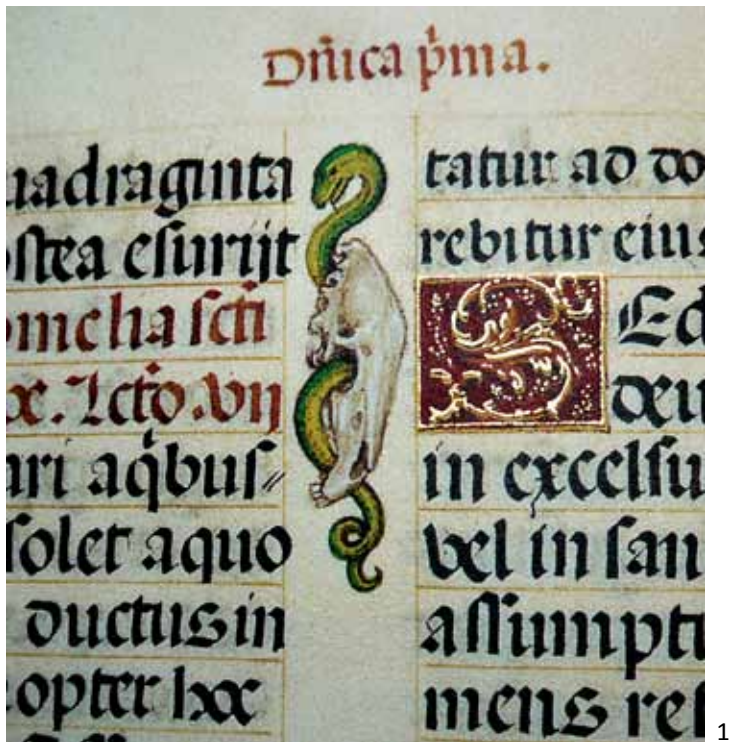 Dñica p̃ma.
uadraginta
ostea esurijt
omelia scti
x. Lcto. vij
ari aq̃bus
solet aquo
ductus in
opter hoc
tatur ad do
rebitur eius
SEd
deu
in excelsu
vel in san
assumpt
mens re
1